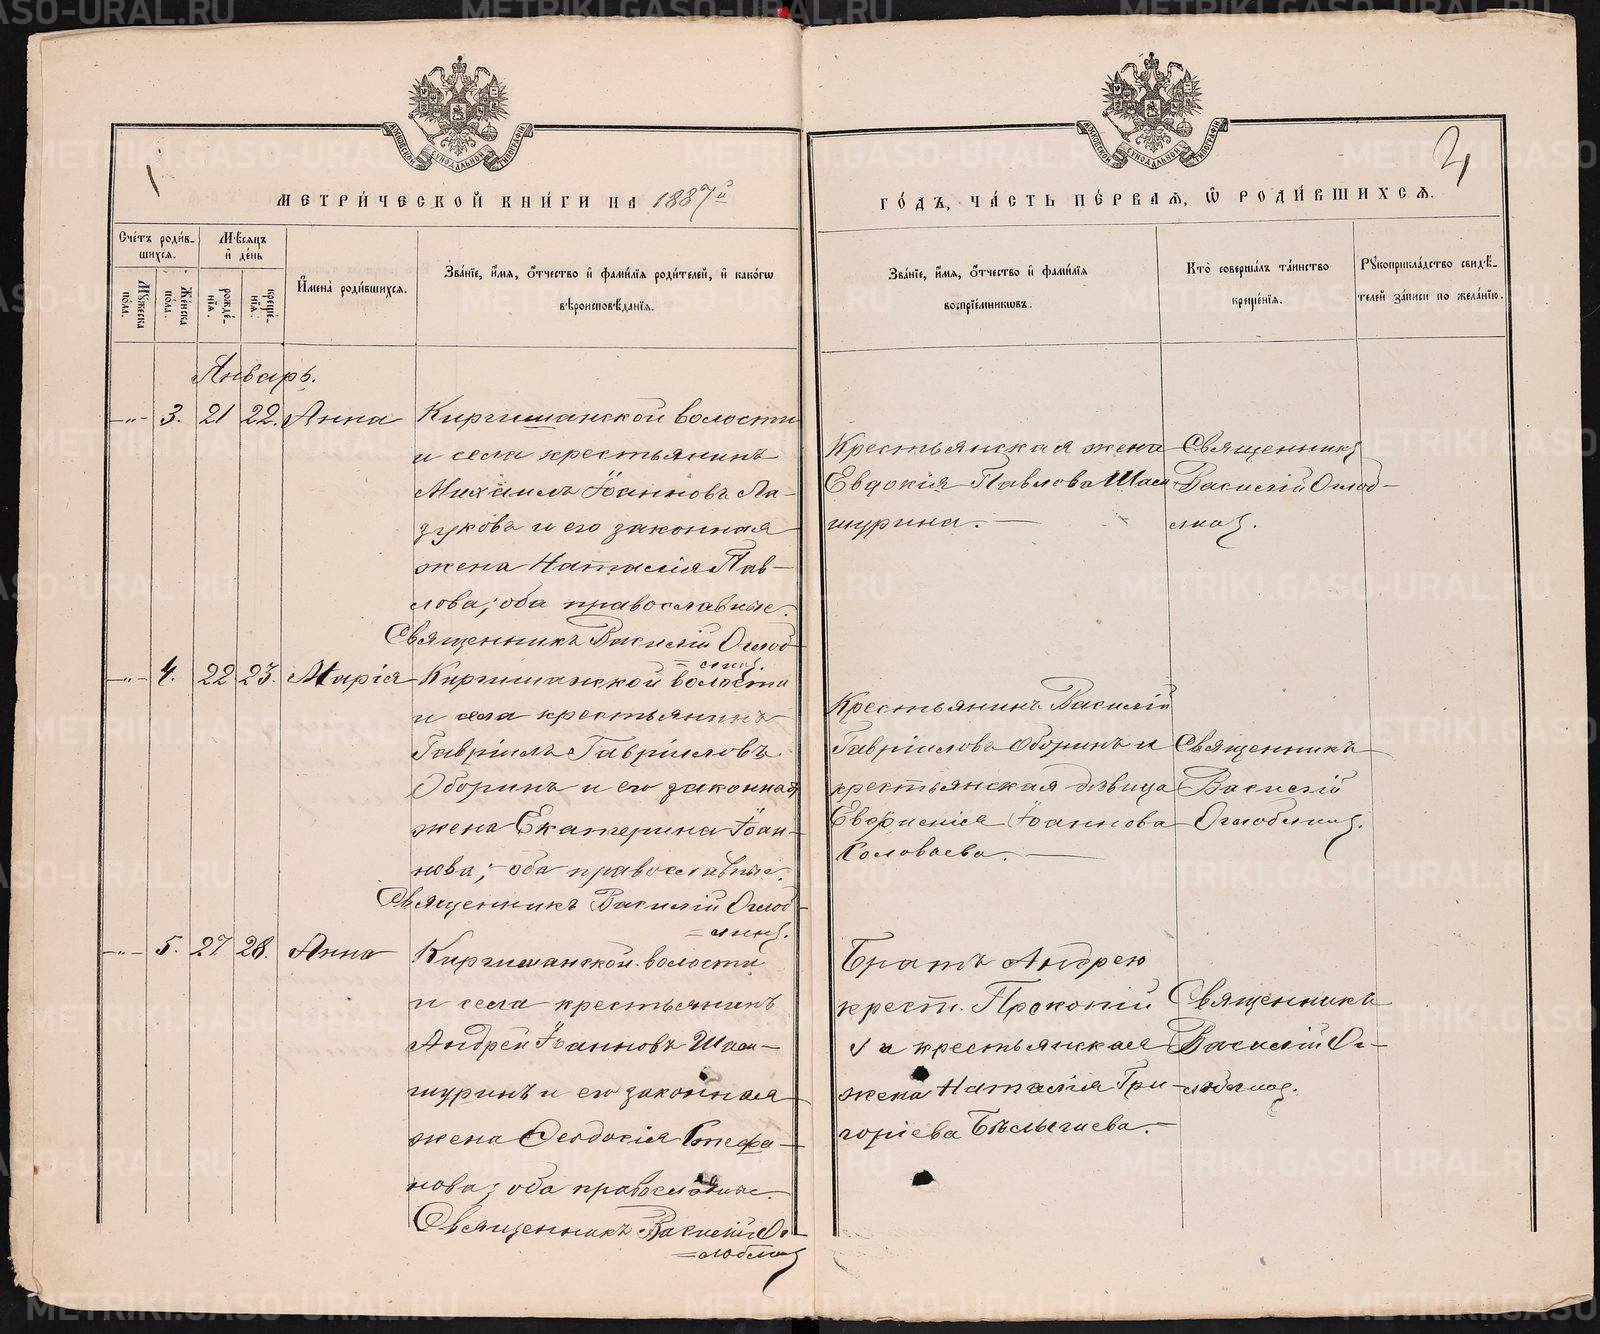 МОСКОВСКОЙ СѴНОДАЛЬНОЙ ТИПОГРАФІИ
МОСКОВСКОЙ СѴНОДАЛЬНОЙ ТИПОГРАФІИ
2
МЕТРИ́ЧЕСКОЙ КНИ́ГИ НА 1887й
ГО́ДЪ, ЧА́СТЬ ПЕ́РВАѦ, Ѡ РОДИ́ВШИХСѦ.
Сче́тъ роди́в-
шихсѧ.
Мꙋжеска по́ла.
Же́нска по́ла.
Мѣ́сѧцъ и де́нь
рожде́нїѧ.
креще́нїѧ.
И҆мена̀ роди́вшихсѧ.
Зва́нїе, и҆́мѧ, ѻ҆́тчество и҆ фами́лїѧ роди́телей, и҆ како́гѡ
вѣроисповѣ́данїѧ.
Зва́нїе, и҆́мѧ, ѻ҆́тчество и҆ фами́лїѧ
воспрїе́мникѡвъ.
Кто̀ соверша́лъ та́инство
креще́нїѧ.
Рꙋкоприкла́дство свидѣ́-
телей за́писи по жела́нїю.
Январь.
-„- 3. 21 22. Анна
Киргишанской волости
и села крестьянинъ
Михаилъ Іоанновъ Ла-
зуковъ и его законная
жена Наталія Пав-
лова; оба православные.
Священникъ Василій Оглоб-
=линъ.
Крестьянская жена
Евдокія Павлова Шаш
мурина.
Священникъ
Василій Оглоб-
линъ.
-„- 4. 22 23. Марія
Киргишанской волости
и села крестьянинъ
Гавріилъ Гавріиловъ
Оборинъ и его законная
жена Екатерина Іоан-
нова; оба православные.
Священникъ Василій Оглоб
=линъ.
Крестьянинъ Василій
Гавріиловъ Оборинъ и
крестьянская дѣвица
Евфимія Іоаннова
Головаева.
Священникъ
Василій
Оглоблинъ.
-„- 5. 27 28. Анна
Киргишанской волости
и села крестьянинъ
Андрей Іоанновъ Шаш-
муринъ и его законная
жена Ѳеодосія Стефа-
нова; оба православные.
Священникъ Василій Ог-
=лоблинъ
Братъ Андрею
крест. Прокопій
и крестьянская
жена Наталія Гри-
горіева Бѣлычева.
Священникъ
Василій Ог-
лоблинъ.
METRIKI.GASO-URAL.RU